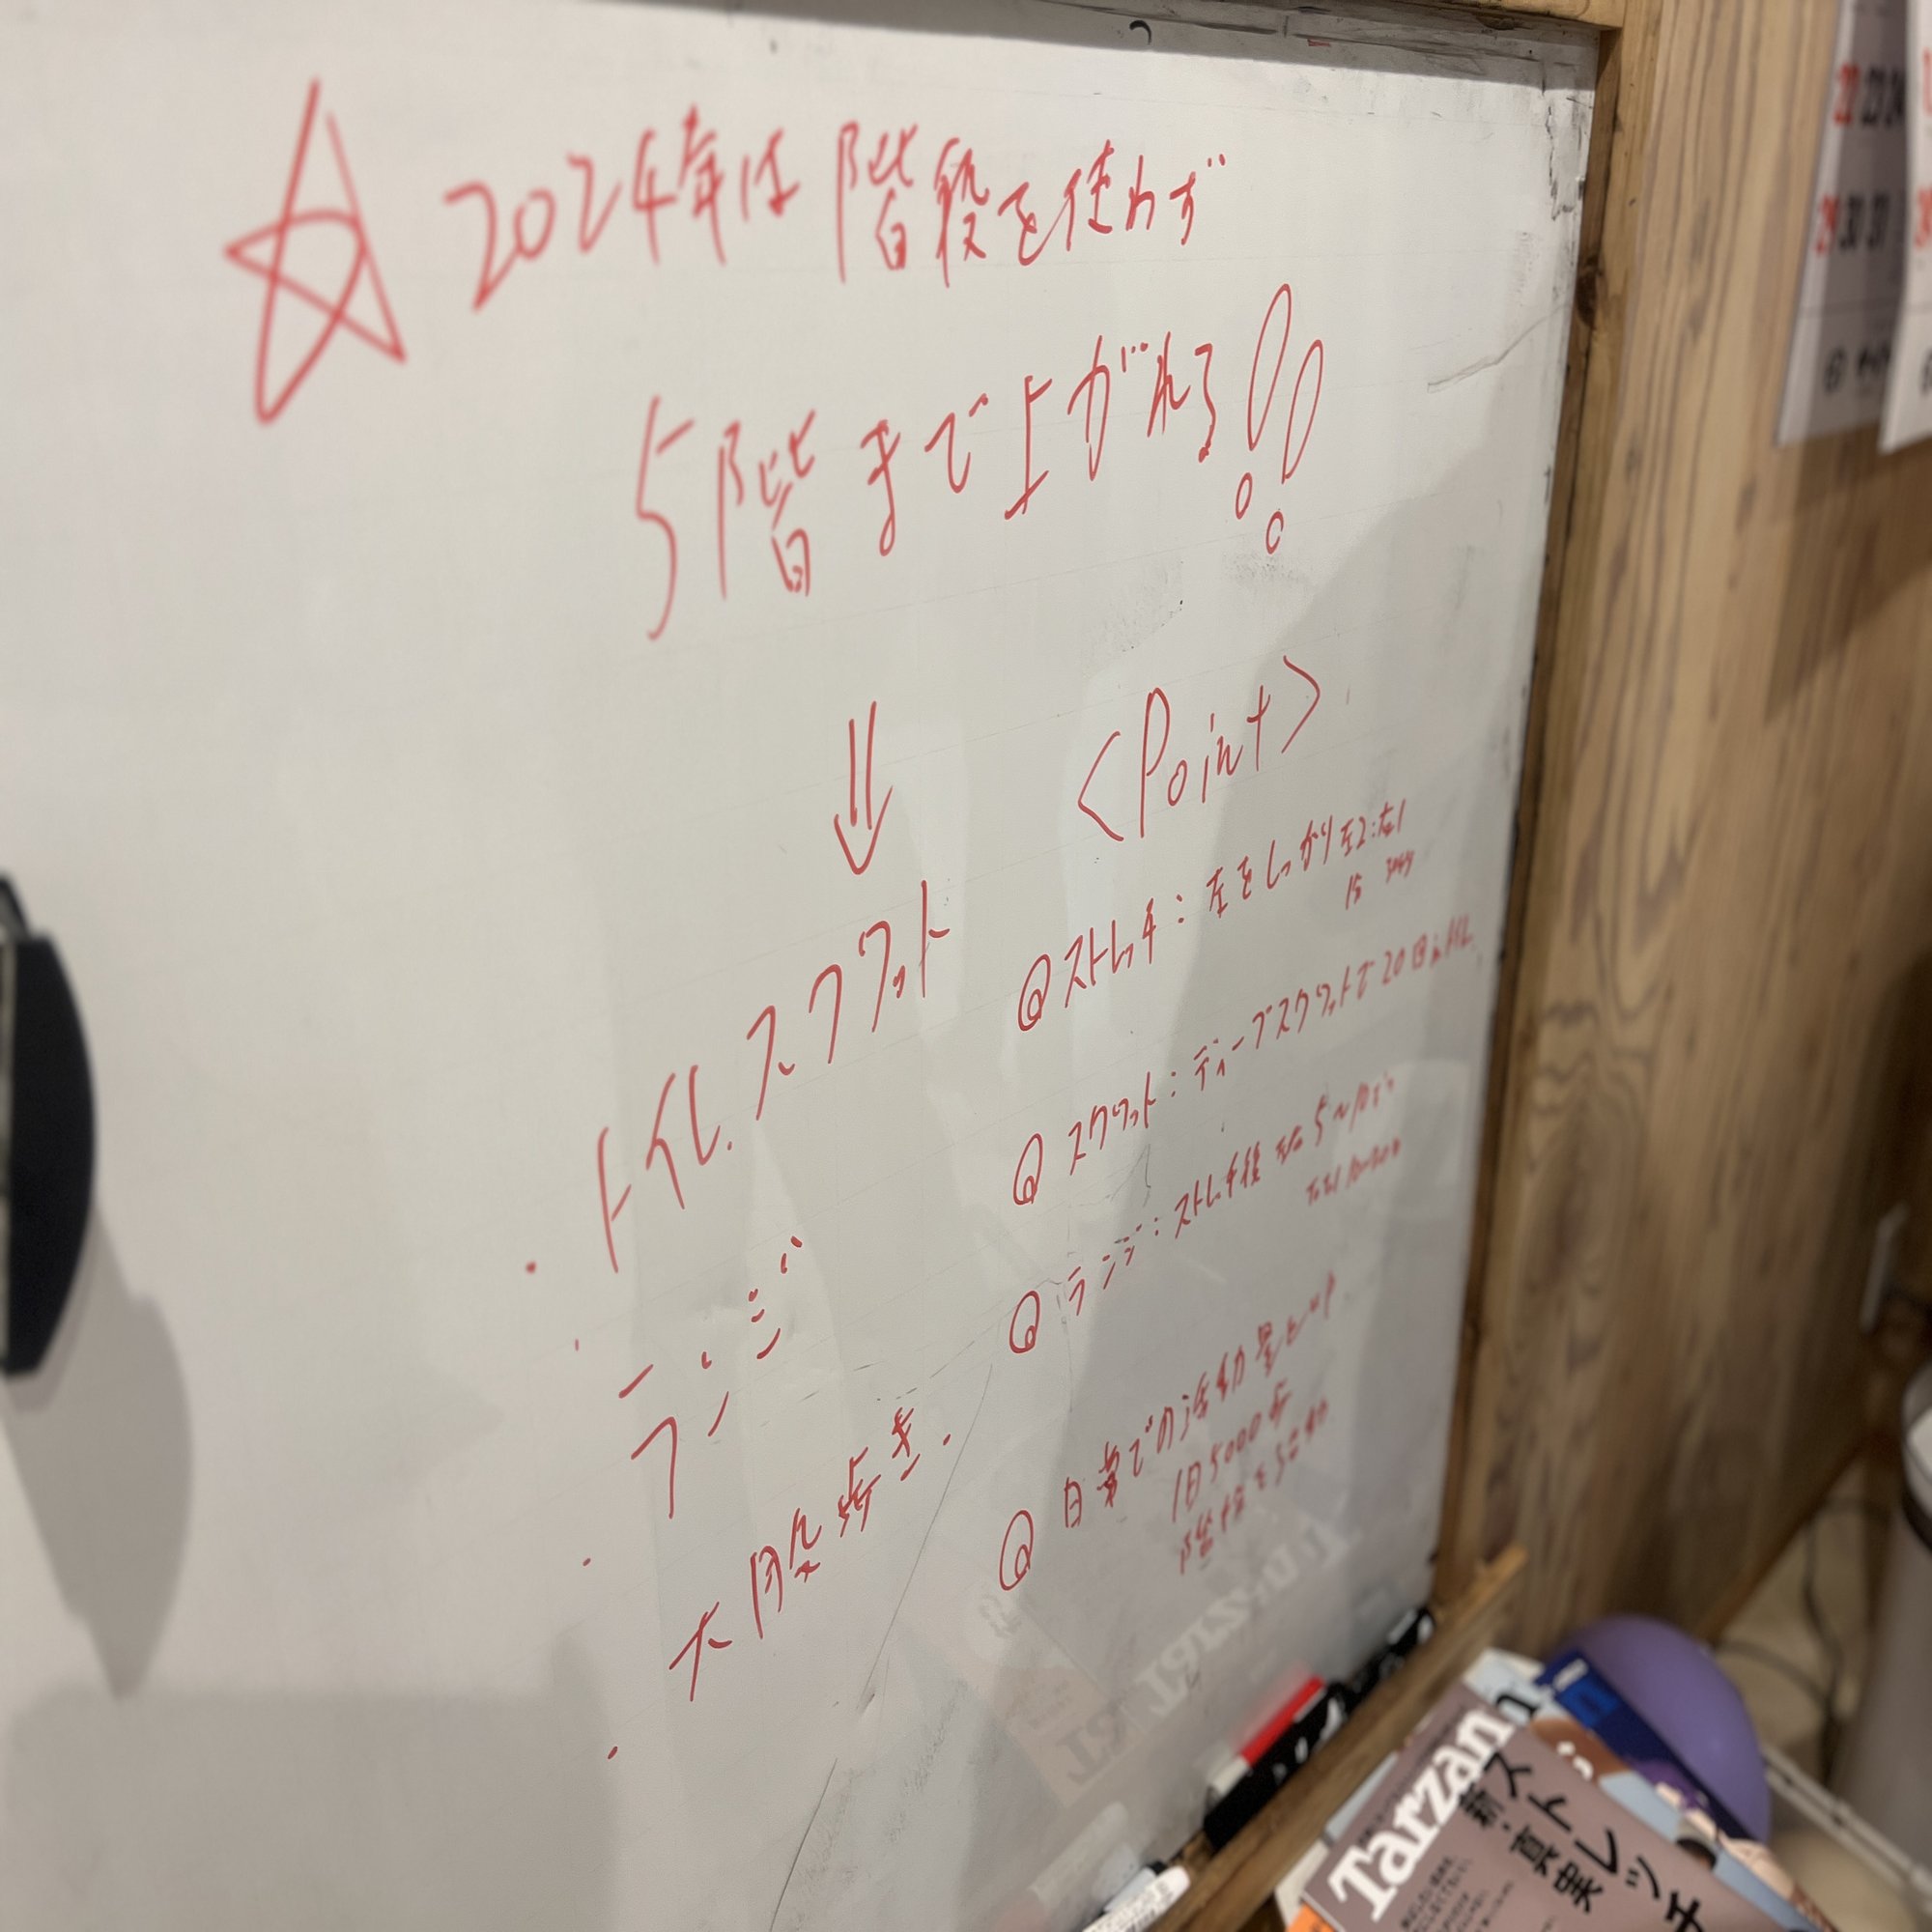 ☆ 2024年は階段を使わず
5階まで上がれる!!
⇓
・トイレスクワット
・ランジ
・大股歩き
<Point>
@ストレッチ：左をしっかり 左2：右1
@スクワット：ディープスクワットで20回
@ランジ：ストレッチ後 左右5〜10
@日常での活動量
1日5000歩
Tarzan
ストレッチ
新・真実
22 23 24
29 30 31